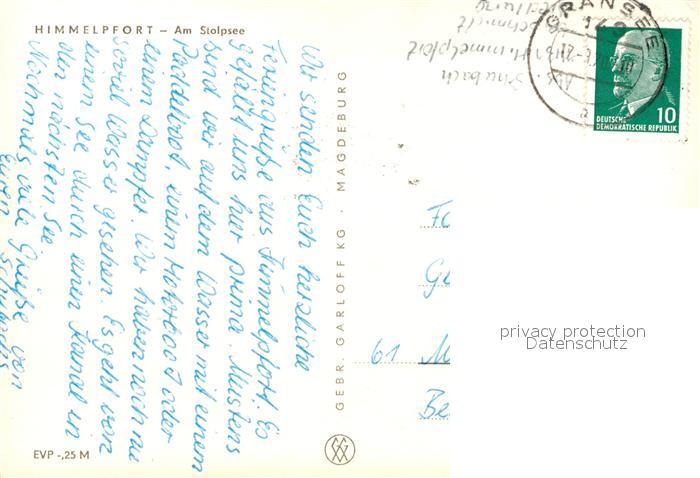 HIMMELPFORT – Am Stolpsee
Wir senden Euch herzliche
Feriengrüße aus Himmelpfort. Es
gefällt uns hier prima. Meistens
sind wir auf dem Wasser mit einem
Paddelboot, einem Motorboot oder
einem Dampfer. Wir haben noch nie
soviel Wasser gesehen. Es geht von
einem See durch einen Kanal in
den nächsten See.
Nochmals viele Grüße von
Euren
EVP -,25 M
GEBR. GARLOFF KG · MAGDEBURG
Himmelpfort
GRANSEE
DEUTSCHE
DEMOKRATISCHE REPUBLIK
10
Fa
61 M
Be
privacy protection
Datenschutz